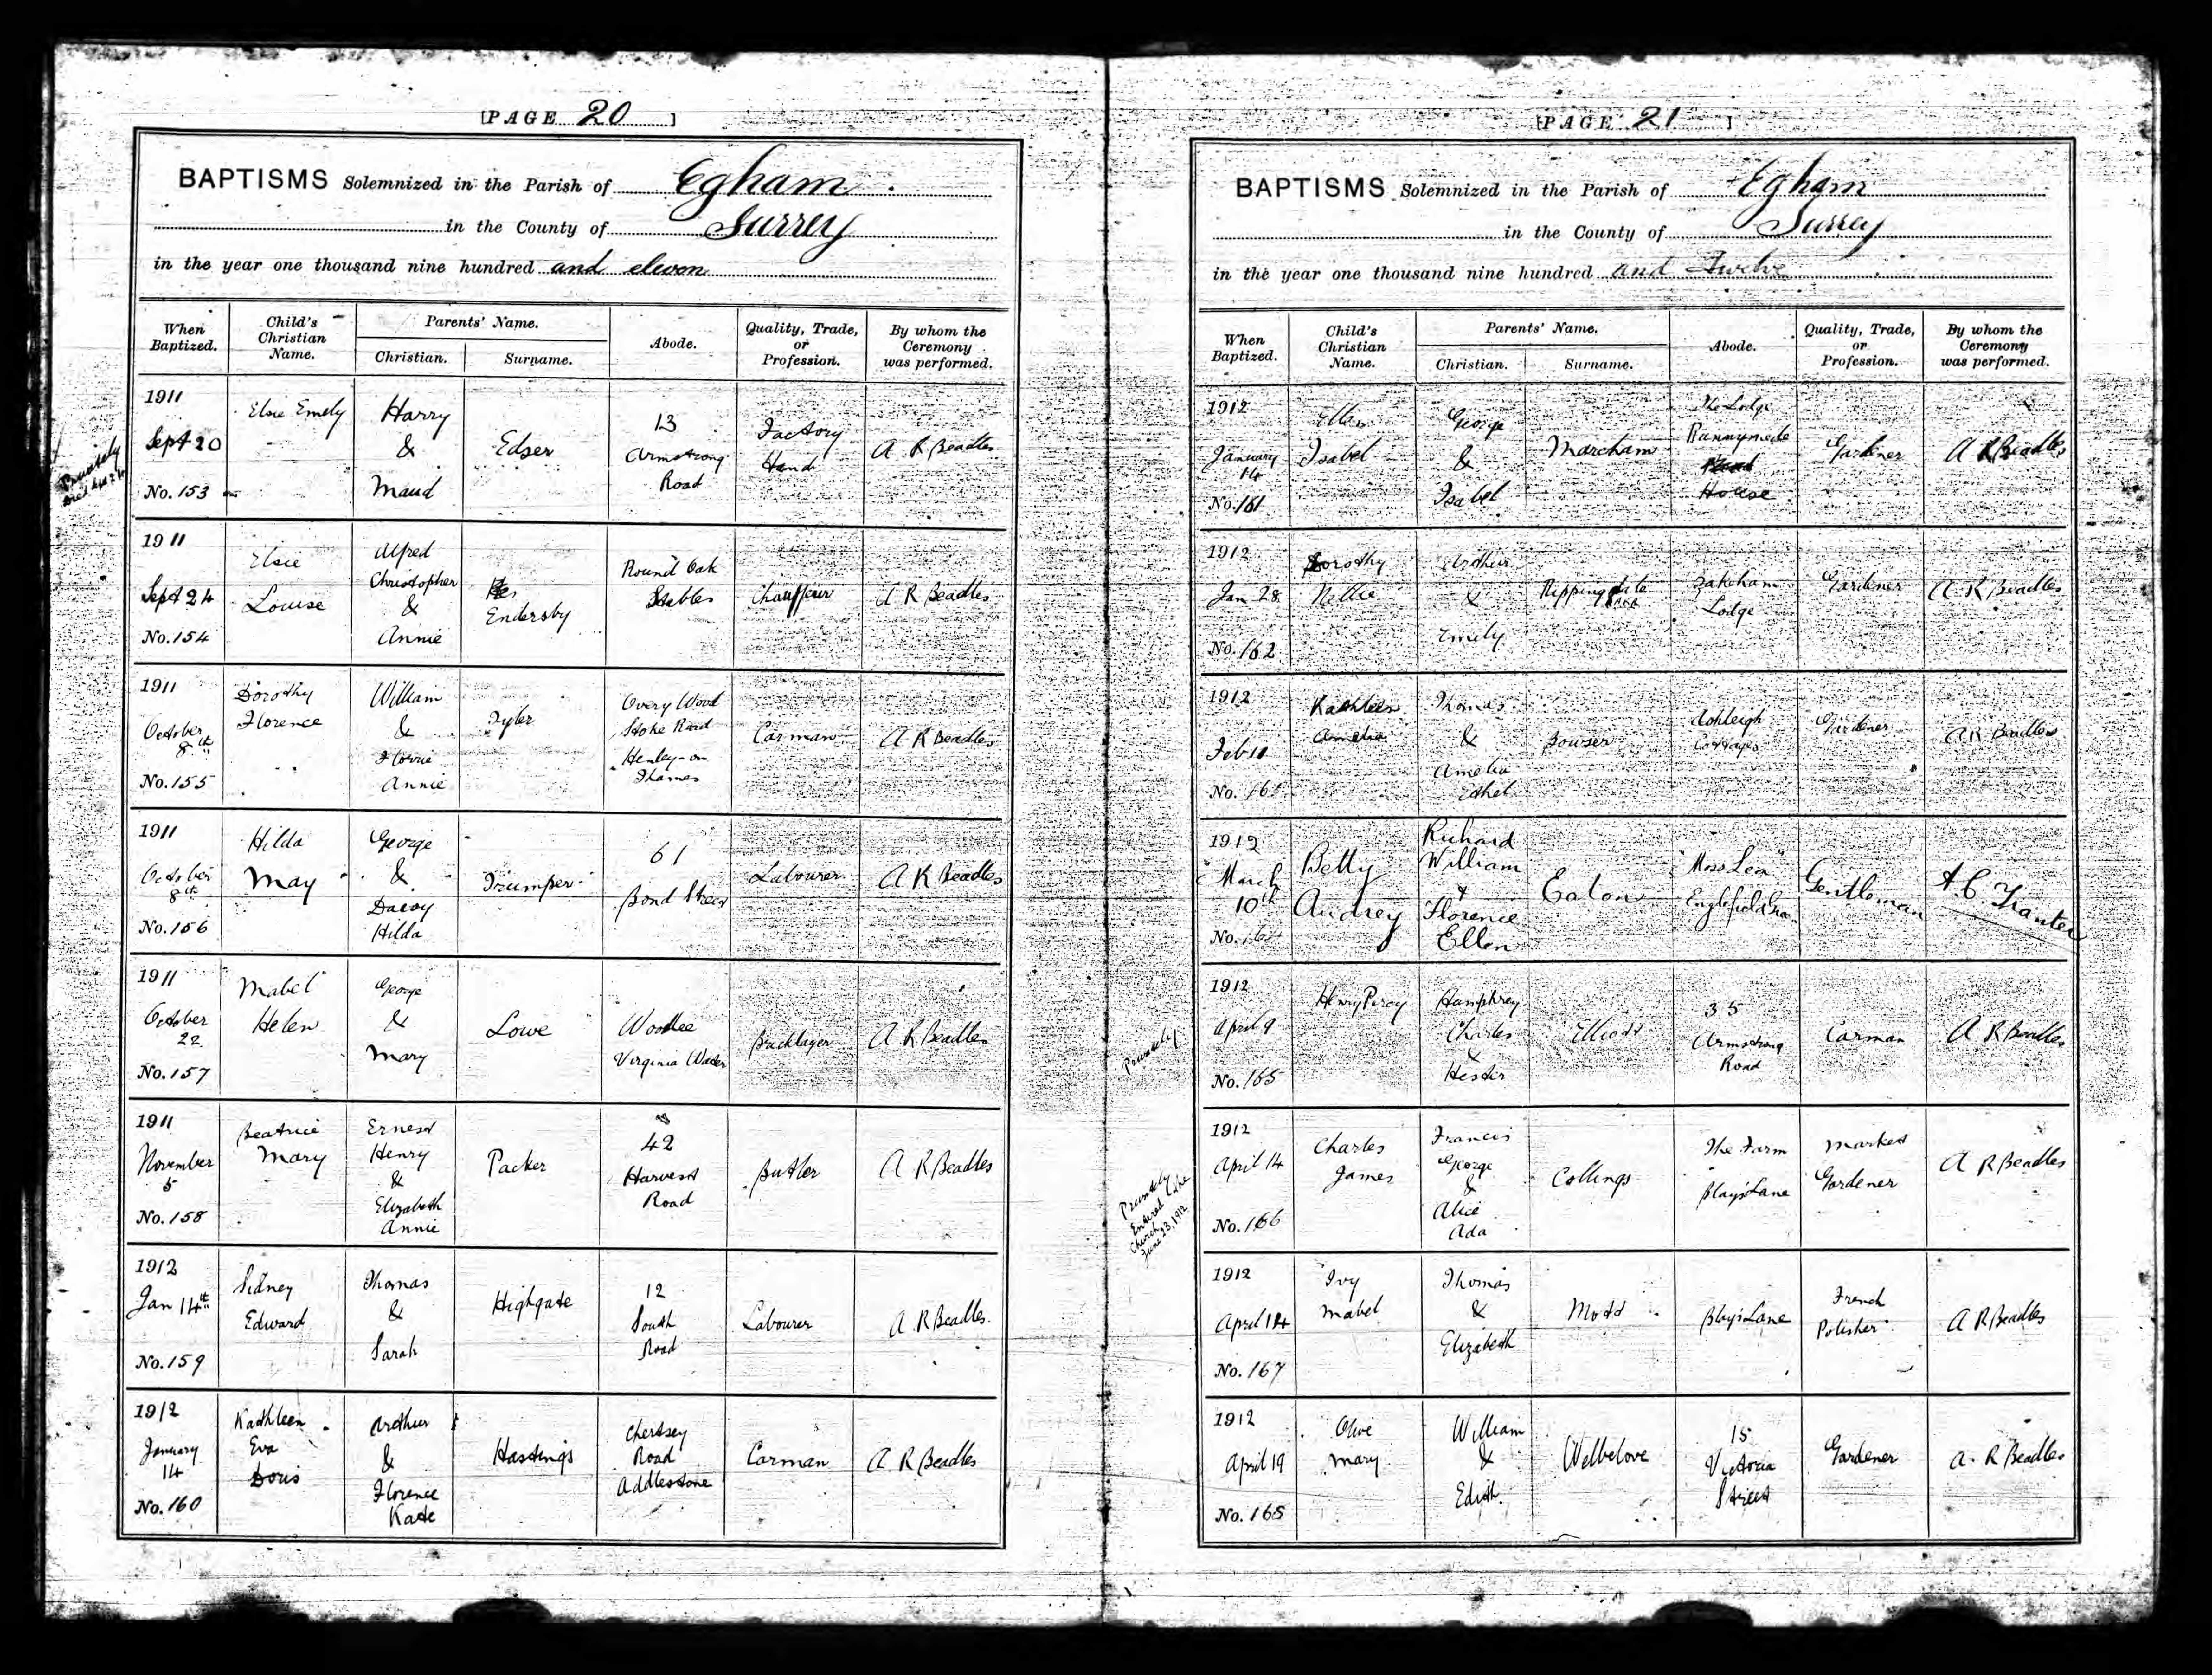 [PAGE 20 ]
BAPTISMS Solemnized in the Parish of Egham
in the County of Surrey
in the year one thousand nine hundred and eleven
When Baptized.
Child's Christian Name.
Parents' Name.
Christian.
Surname.
Abode.
Quality, Trade, or Profession.
By whom the Ceremony was performed.
Privately
1911
Sept 20
No. 153
Elsie Emely
Harry
&
Maud
Edser
13
Armstrong
Road
Factory
Hand
A R Beadles
1911
Sept 24
No. 154
Elsie
Louise
Alfred
Christopher
&
Annie
Endersby
Round Oak
Stables
Chauffeur
A R Beadles
1911
October
8th
No. 155
Dorothy
Florence
William
&
Florrie
Annie
Tyler
Overy Wood
Stoke Road
Henley-on
Thames
Carman
A R Beadles
1911
October
8th
No. 156
Hilda
May
George
&
Daisy
Hilda
Trumper
61
Bond Street
Labourer
A R Beadles
1911
October
22
No. 157
Mabel
Helen
George
&
Mary
Lowe
Woodlee
Virginia Water
Bricklayer
A R Beadles
1911
November
5
No. 158
Beatrice
Mary
Ernest
Henry
&
Elizabeth
Annie
Packer
42
Harvest
Road
Butler
A R Beadles
1912
Jan 14th
No. 159
Sidney
Edward
Thomas
&
Sarah
Highgate
12
South
Road
Labourer
A R Beadles
1912
January
14
No. 160
Kathleen
Eva
Doris
Arthur
&
Florence
Kate
Hastings
Chertsey
Road
Addlestone
Carman
A R Beadles
[PAGE 21 ]
BAPTISMS Solemnized in the Parish of Egham
in the County of Surrey
in the year one thousand nine hundred and Twelve
When Baptized.
Child's Christian Name.
Parents' Name.
Christian.
Surname.
Abode.
Quality, Trade, or Profession.
By whom the Ceremony was performed.
1912
January
14
No. 161
Ellen
Isabel
George
&
Isabel
Marcham
The Lodge
Runnymede
House
Gardener
A R Beadles
1912
Jan 28
No. 162
Dorothy
Nellie
Arthur
&
Emily
Lodge
Gardener
A R Beadles
1912
Feb 11
No. 16
Kathleen
Amelia
Thomas
&
Amelia
Ethel
Bowser
Ashleigh
Cottages
Gardener
A R Beadles
1912
March
10th
No. 16
Betty
Audrey
Richard
William
+
Florence
Ellen
Eaton
"Moss Lea"
Englefield Green
Gentleman
A. C. Tranter
Privately
1912
April 9
No. 165
Henry Percy
Humphrey
Charles
&
Hester
Elliott
35
Armstrong
Road
Carman
A R Beadles
Privately
Entered into
Church
June 23, 1912
1912
April 14
No. 166
Charles
James
Francis
George
&
Alice
Ada
Collings
The Farm
Blay's Lane
Market
Gardener
A R Beadles
1912
April 14
No. 167
Ivy
Mabel
Thomas
&
Elizabeth
Mott
Blay's Lane
French
Polisher
A R Beadles
1912
April 19
No. 168
Olive
Mary
William
&
Edith
Welbelove
15
Victoria
Street
Gardener
A. R Beadles